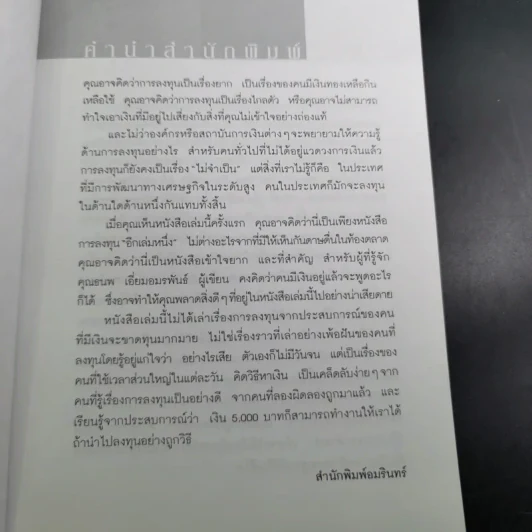 คำนำสำนักพิมพ์
คุณอาจคิดว่าการลงทุนเป็นเรื่องยาก เป็นเรื่องของคนมีเงินทองเหลือกิน
เหลือใช้ คุณอาจคิดว่าการลงทุนเป็นเรื่องไกลตัว หรือคุณอาจไม่สามารถ
ทำใจเอาเงินที่มีอยู่ไปเสี่ยงกับสิ่งที่คุณไม่เข้าใจอย่างถ่องแท้
และไม่ว่าองค์กรหรือสถาบันการเงินต่างๆจะพยายามให้ความรู้
ด้านการลงทุนอย่างไร สำหรับคนทั่วไปที่ไม่ได้อยู่แวดวงการเงินแล้ว
การลงทุนก็ยังคงเป็นเรื่อง "ไม่จำเป็น" แต่สิ่งที่เราไม่รู้ก็คือ ในประเทศ
ที่มีการพัฒนาทางเศรษฐกิจในระดับสูง คนในประเทศก็มักจะลงทุน
ในด้านใดด้านหนึ่งกันแทบทั้งสิ้น
เมื่อคุณเห็นหนังสือเล่มนี้ครั้งแรก คุณอาจคิดว่านี่เป็นเพียงหนังสือ
การลงทุน "อีกเล่มหนึ่ง" ไม่ต่างอะไรจากที่มีให้เห็นกันดาษดื่นในท้องตลาด
คุณอาจคิดว่านี่เป็นหนังสือเข้าใจยาก และที่สำคัญ สำหรับผู้ที่รู้จัก
คุณธนพ เอี่ยมอมรพันธ์ ผู้เขียน คงคิดว่าคนมีเงินอยู่แล้วจะพูดอะไร
ก็ได้ ซึ่งอาจทำให้คุณพลาดสิ่งดีๆที่อยู่ในหนังสือเล่มนี้ไปอย่างน่าเสียดาย
หนังสือเล่มนี้ไม่ได้เล่าเรื่องการลงทุนจากประสบการณ์ของคน
ที่มีเงินจะขาดทุนมากมาย ไม่ใช่เรื่องราวที่เล่าอย่างเพ้อฝันของคนที่
ลงทุนโดยรู้อยู่แก่ใจว่า อย่างไรเสีย ตัวเองก็ไม่มีวันจน แต่เป็นเรื่องของ
คนที่ใช้เวลาส่วนใหญ่ในแต่ละวัน คิดวิธีหาเงิน เป็นเคล็ดลับง่ายๆจาก
คนที่รู้เรื่องการลงทุนเป็นอย่างดี จากคนที่ลองผิดลองถูกมาแล้ว และ
เรียนรู้จากประสบการณ์ว่า เงิน 5,000 บาทก็สามารถทำงานให้เราได้
ถ้านำไปลงทุนอย่างถูกวิธี
สำนักพิมพ์อมรินทร์